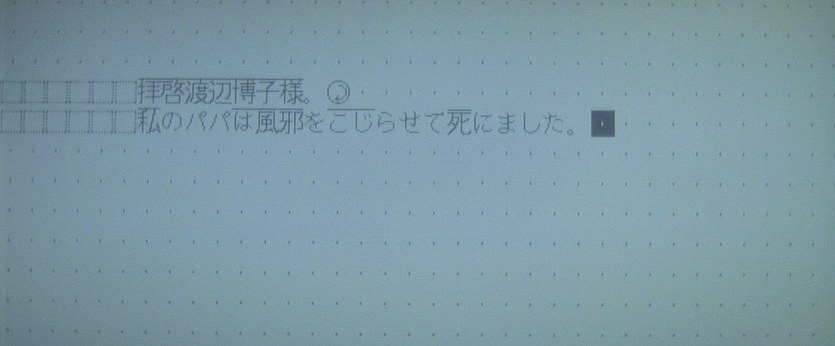 拝啓渡辺博子様。
私のパパは風邪をこじらせて死にました。